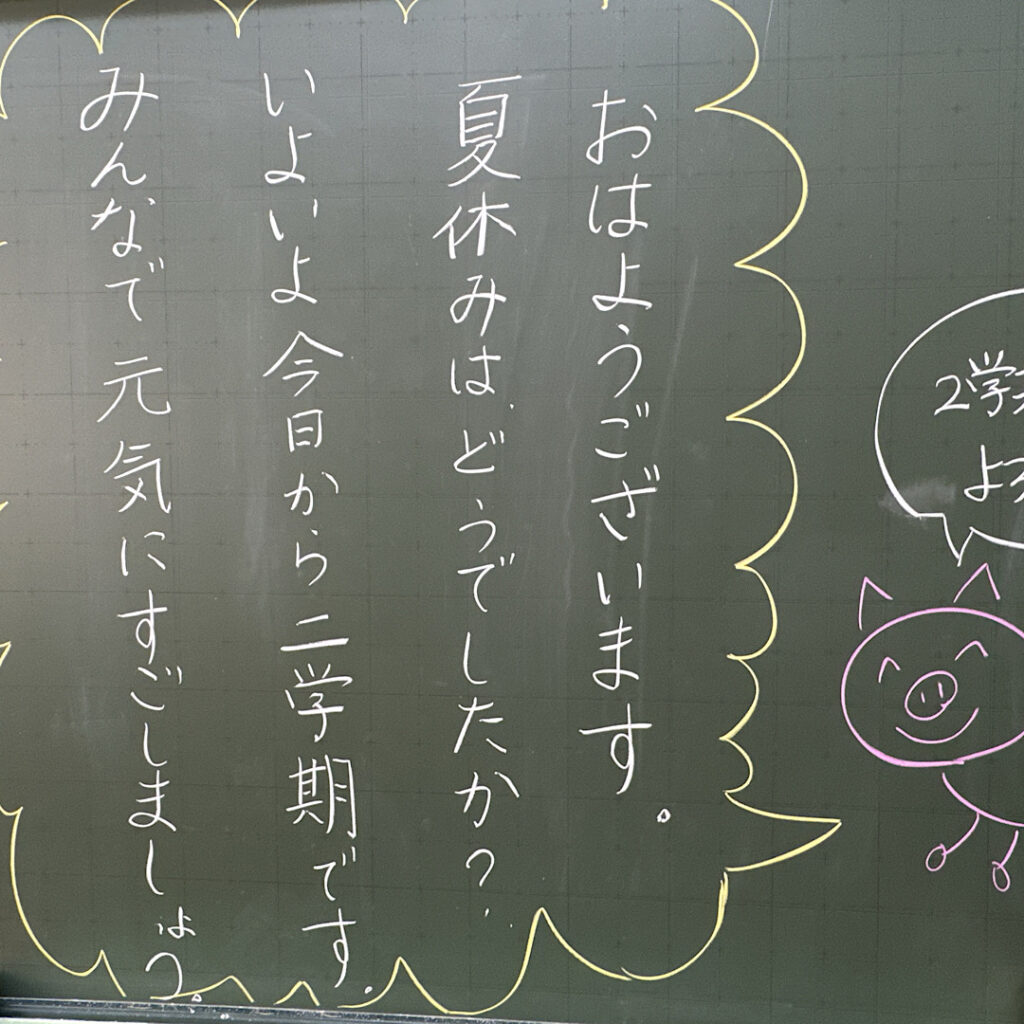 2学
よ
おはようございます。
夏休みはどうでしたか?
いよいよ今日から二学期です。
みんなで元気にすごしましょう。